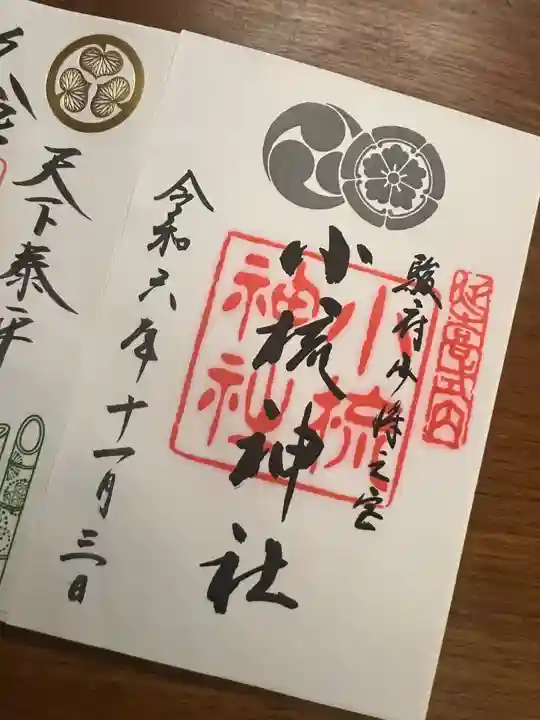 駿府少将之宮
小梳神社
小梳神社
令和六年十一月三日
延喜式内
天下泰平